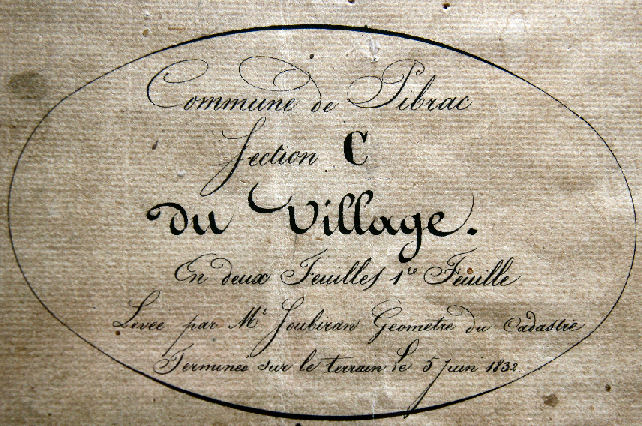 Commune de Pibrac
Section C
du Village.
En deux Feuilles 1re Feuille
Levée par Mr Joubiran Geometre du Cadastre
Terminée sur le terrain le 5 Juin 1832